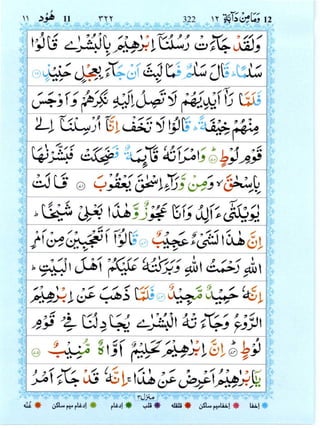 ١١ هُوْد 11 ٣٢٢ 322 وَمَا مِنْ دَآبَّةٍ ١٢ 12
وَلَقَدْ جَآءَتْ رُسُلُنَاۤ اِبْرٰهِيْمَ بِالْبُشْرٰى قَالُوْا
سَلٰمًا ؕ قَالَ سَلٰمٌ فَمَا لَبِثَ اَنْ جَآءَ بِعِجْلٍ حَنِيْذٍ
فَلَمَّا رَاٰۤ اَيْدِيَهُمْ لَا تَصِلُ اِلَيْهِ نَكِرَهُمْ وَاَوْجَسَ
مِنْهُمْ خِيْفَةً ؕ قَالُوْا لَا تَخَفْ اِنَّاۤ اُرْسِلْنَاۤ اِلٰى
قَوْمِ لُوْطٍ وَامْرَاَتُهٗ قَآئِمَةٌ فَضَحِكَتْ فَبَشَّرْنٰهَا
بِاِسْحٰقَ ۙ وَمِنْ وَّرَآءِ اِسْحٰقَ يَعْقُوْبَ قَالَتْ
يٰوَيْلَتٰٓى ءَاَلِدُ وَاَنَا عَجُوْزٌ وَّهٰذَا بَعْلِيْ شَيْخًا ؕ
اِنَّ هٰذَا لَشَيْءٌ عَجِيْبٌ قَالُوْۤا اَتَعْجَبِيْنَ مِنْ اَمْرِ
اللّٰهِ رَحْمَتُ اللّٰهِ وَبَرَكَاتُهٗ عَلَيْكُمْ اَهْلَ الْبَيْتِ ؕ
اِنَّهٗ حَمِيْدٌ مَّجِيْدٌ فَلَمَّا ذَهَبَ عَنْ اِبْرٰهِيْمَ
الرَّوْعُ وَجَآءَتْهُ الْبُشْرٰى يُجَادِلُنَا فِيْ قَوْمِ
لُوْطٍ اِنَّ اِبْرٰهِيْمَ لَحَلِيْمٌ اَوَّاهٌ مُّنِيْبٌ
يٰۤاِبْرٰهِيْمُ اَعْرِضْ عَنْ هٰذَا ۚ اِنَّهٗ قَدْ جَآءَ اَمْرُ
منزل ٣
اخفا اخفا میم ساکن قلقله قلب ادغام ادغام میم ساکن غنه